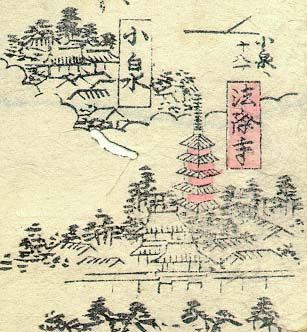 小泉へ
十八
法隆寺
小白水